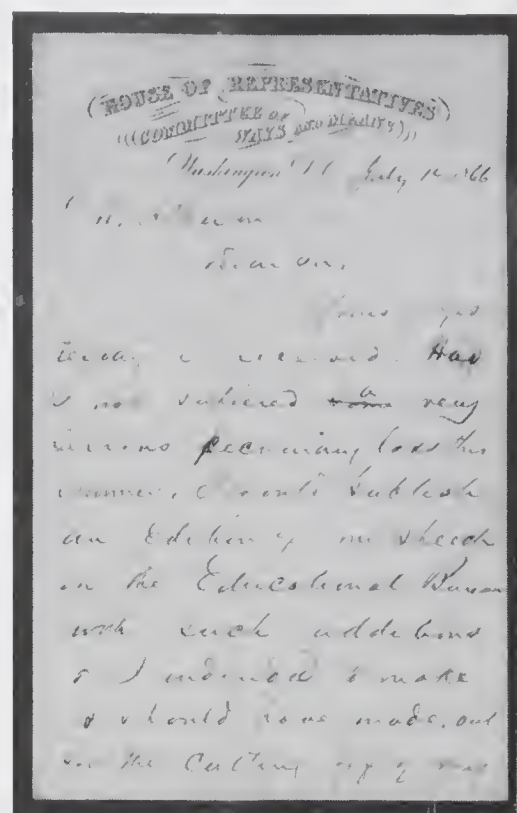 HOUSE OF REPRESENTATIVES
COMMITTEE OF
WAYS AND MEANS
Washington July 1866
Dear Sir,
Yours yes
received. Had
I not suffered a very
serious pecuniary loss this
summer, I would publish
an Edition of my speech
on the Educational Bureau
with such additions
as I intended to make
& should have made, but
for the cutting off of